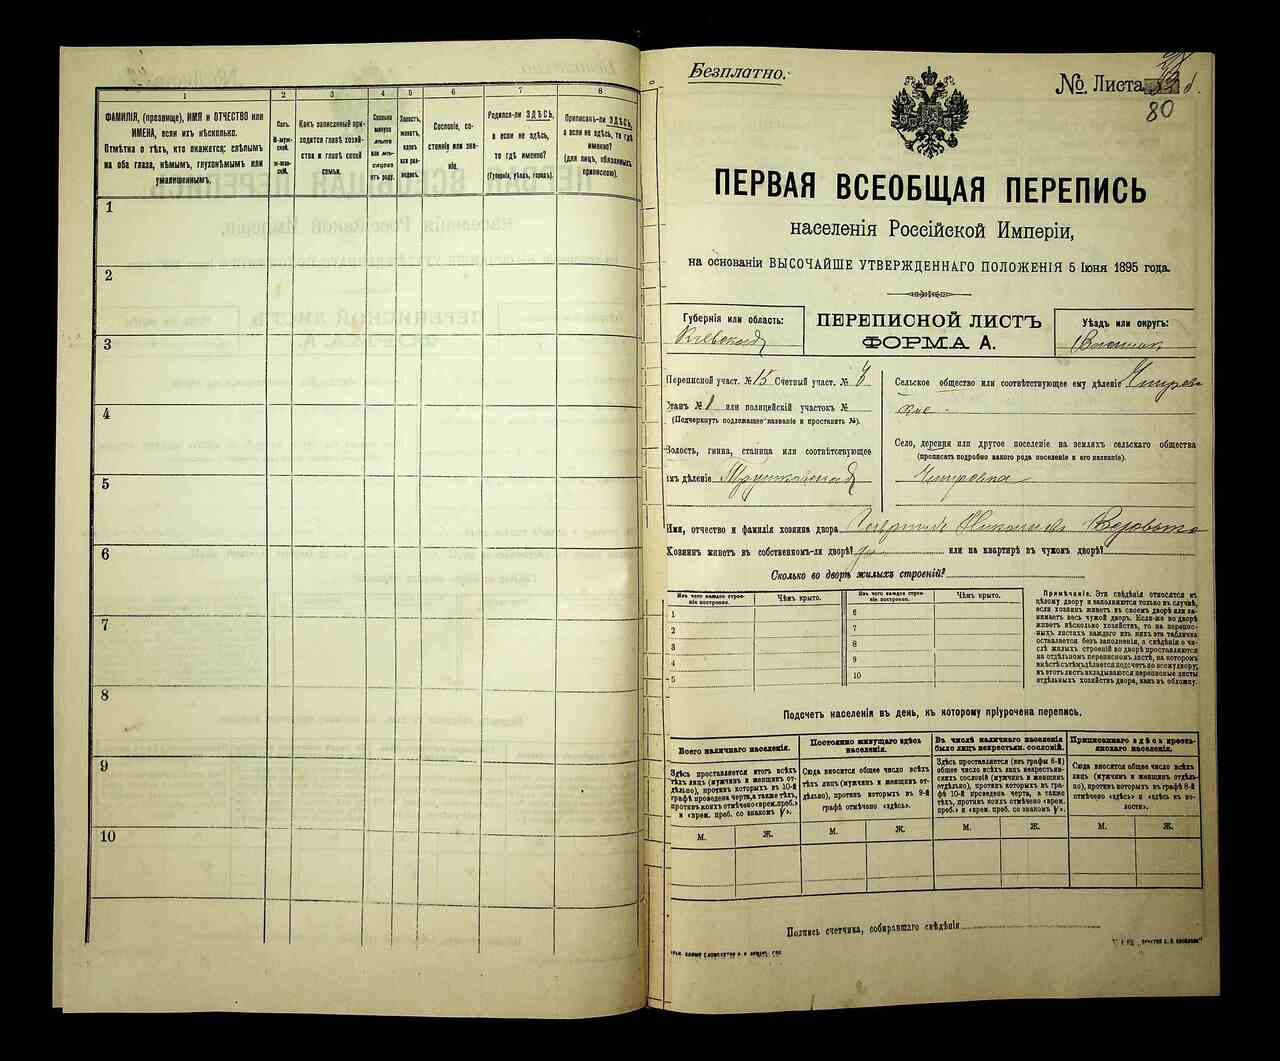 1
2
3
4
5
6
7
8
ФАМИЛІЯ, (прозвище), ИМЯ и ОТЧЕСТВО или
ИМЕНА, если ихъ нѣсколько.
Отмѣтка о тѣхъ, кто окажется: слѣпымъ
на оба глаза, нѣмымъ, глухонѣмымъ или
умалишеннымъ.
Полъ.
М-муж-
ской.
ж-жен-
скій.
Какъ записанный при-
ходится главѣ хозяй-
ства и главѣ своей
семьи.
Сколько
минуло
лѣтъ
или мѣ-
сяцевъ
отъ роду.
Холостъ,
женатъ,
вдовъ
или раз-
веденъ.
Сословіе, со-
стояніе или зва-
ніе.
Родился-ли ЗДѢСЬ,
а если не здѣсь,
то гдѣ именно?
(Губернія, уѣздъ, городъ).
Приписанъ-ли ЗДѢСЬ,
а если не здѣсь, то гдѣ
именно?
(для лицъ, обязанныхъ
припискою).
1
2
3
4
5
6
7
8
9
10
Безплатно.
№ Листа
80
ПЕРВАЯ ВСЕОБЩАЯ ПЕРЕПИСЬ
населенія Россійской Имперіи,
на основаніи ВЫСОЧАЙШЕ УТВЕРЖДЕННАГО ПОЛОЖЕНІЯ 5 Іюня 1895 года.
Губернія или область:
Кіевская
ПЕРЕПИСНОЙ ЛИСТЪ
ФОРМА А.
Уѣздъ или округъ:
Переписной участ. № 15 Счетный участ. №
Станъ № 1 или полицейскій участокъ №
(Подчеркнуть подлежащее названіе и проставить №).
Волость, гмина, станица или соотвѣтствующее
имъ дѣленіе
Сельское общество или соотвѣтствующее ему дѣленіе
Село, деревня или другое поселеніе на земляхъ сельскаго общества
(прописать подробно какого рода поселеніе и его названіе).
Имя, отчество и фамилія хозяина двора
Хозяинъ живетъ въ собственномъ-ли дворѣ? да или на квартирѣ въ чужомъ дворѣ?
Сколько во дворѣ жилыхъ строеній?
Изъ чего каждое строе-
ніе построено.
Чѣмъ крыто.
Изъ чего каждое строе-
ніе построено.
Чѣмъ крыто.
1
2
3
4
5
6
7
8
9
10
Примѣчаніе. Эти свѣдѣнія относятся къ
цѣлому двору и заполняются только въ случаѣ,
если хозяинъ живетъ въ своемъ дворѣ или за-
нимаетъ весь чужой дворъ. Если-же во дворѣ
живетъ нѣсколько хозяйствъ, то на перепис-
ныхъ листахъ каждаго изъ нихъ эта табличка
оставляется безъ заполненія, а свѣдѣнія о чи-
слѣ жилыхъ строеній во дворѣ проставляются
на отдѣльномъ переписномъ листѣ, на которомъ
вмѣстѣ съ тѣмъ дѣлается подсчетъ по всему двору;
въ этотъ листъ вкладываются переписные листы
отдѣльныхъ хозяйствъ двора, какъ въ обложку.
Подсчетъ населенія въ день, къ которому пріурочена перепись.
Всего наличнаго населенія.
Здѣсь проставляется итогъ всѣхъ
тѣхъ лицъ (мужчинъ и женщинъ от-
дѣльно), противъ которыхъ въ 10-й
графѣ проведена черта, а также тѣхъ,
противъ коихъ отмѣчено «врем. преб.»
и «врем. преб. со знакомъ V».
Постоянно живущаго здѣсь
населенія.
Сюда вносится общее число всѣхъ
тѣхъ лицъ (мужчинъ и женщинъ от-
дѣльно), противъ которыхъ въ 9-й
графѣ отмѣчено «здѣсь».
Въ числѣ наличнаго населенія
было лицъ некрестьян. сословій.
Здѣсь проставляется (изъ графы 6-й)
общее число всѣхъ лицъ некрестьян-
скихъ сословій (мужчинъ и женщинъ
отдѣльно), противъ которыхъ въ гра-
фѣ 10-й проведена черта, а также
тѣхъ, противъ коихъ отмѣчено «врем.
преб.» и «врем. преб. со знакомъ V».
Приписаннаго здѣсь кресть-
янскаго населенія.
Сюда вносится общее число всѣхъ
лицъ (мужчинъ и женщинъ отдѣль-
но), противъ которыхъ въ графѣ 8-й
отмѣчено «здѣсь» и «здѣсь въ во-
лости».
М. Ж. М. Ж. М. Ж. М. Ж.
Подпись счетчика, собиравшаго свѣдѣнія